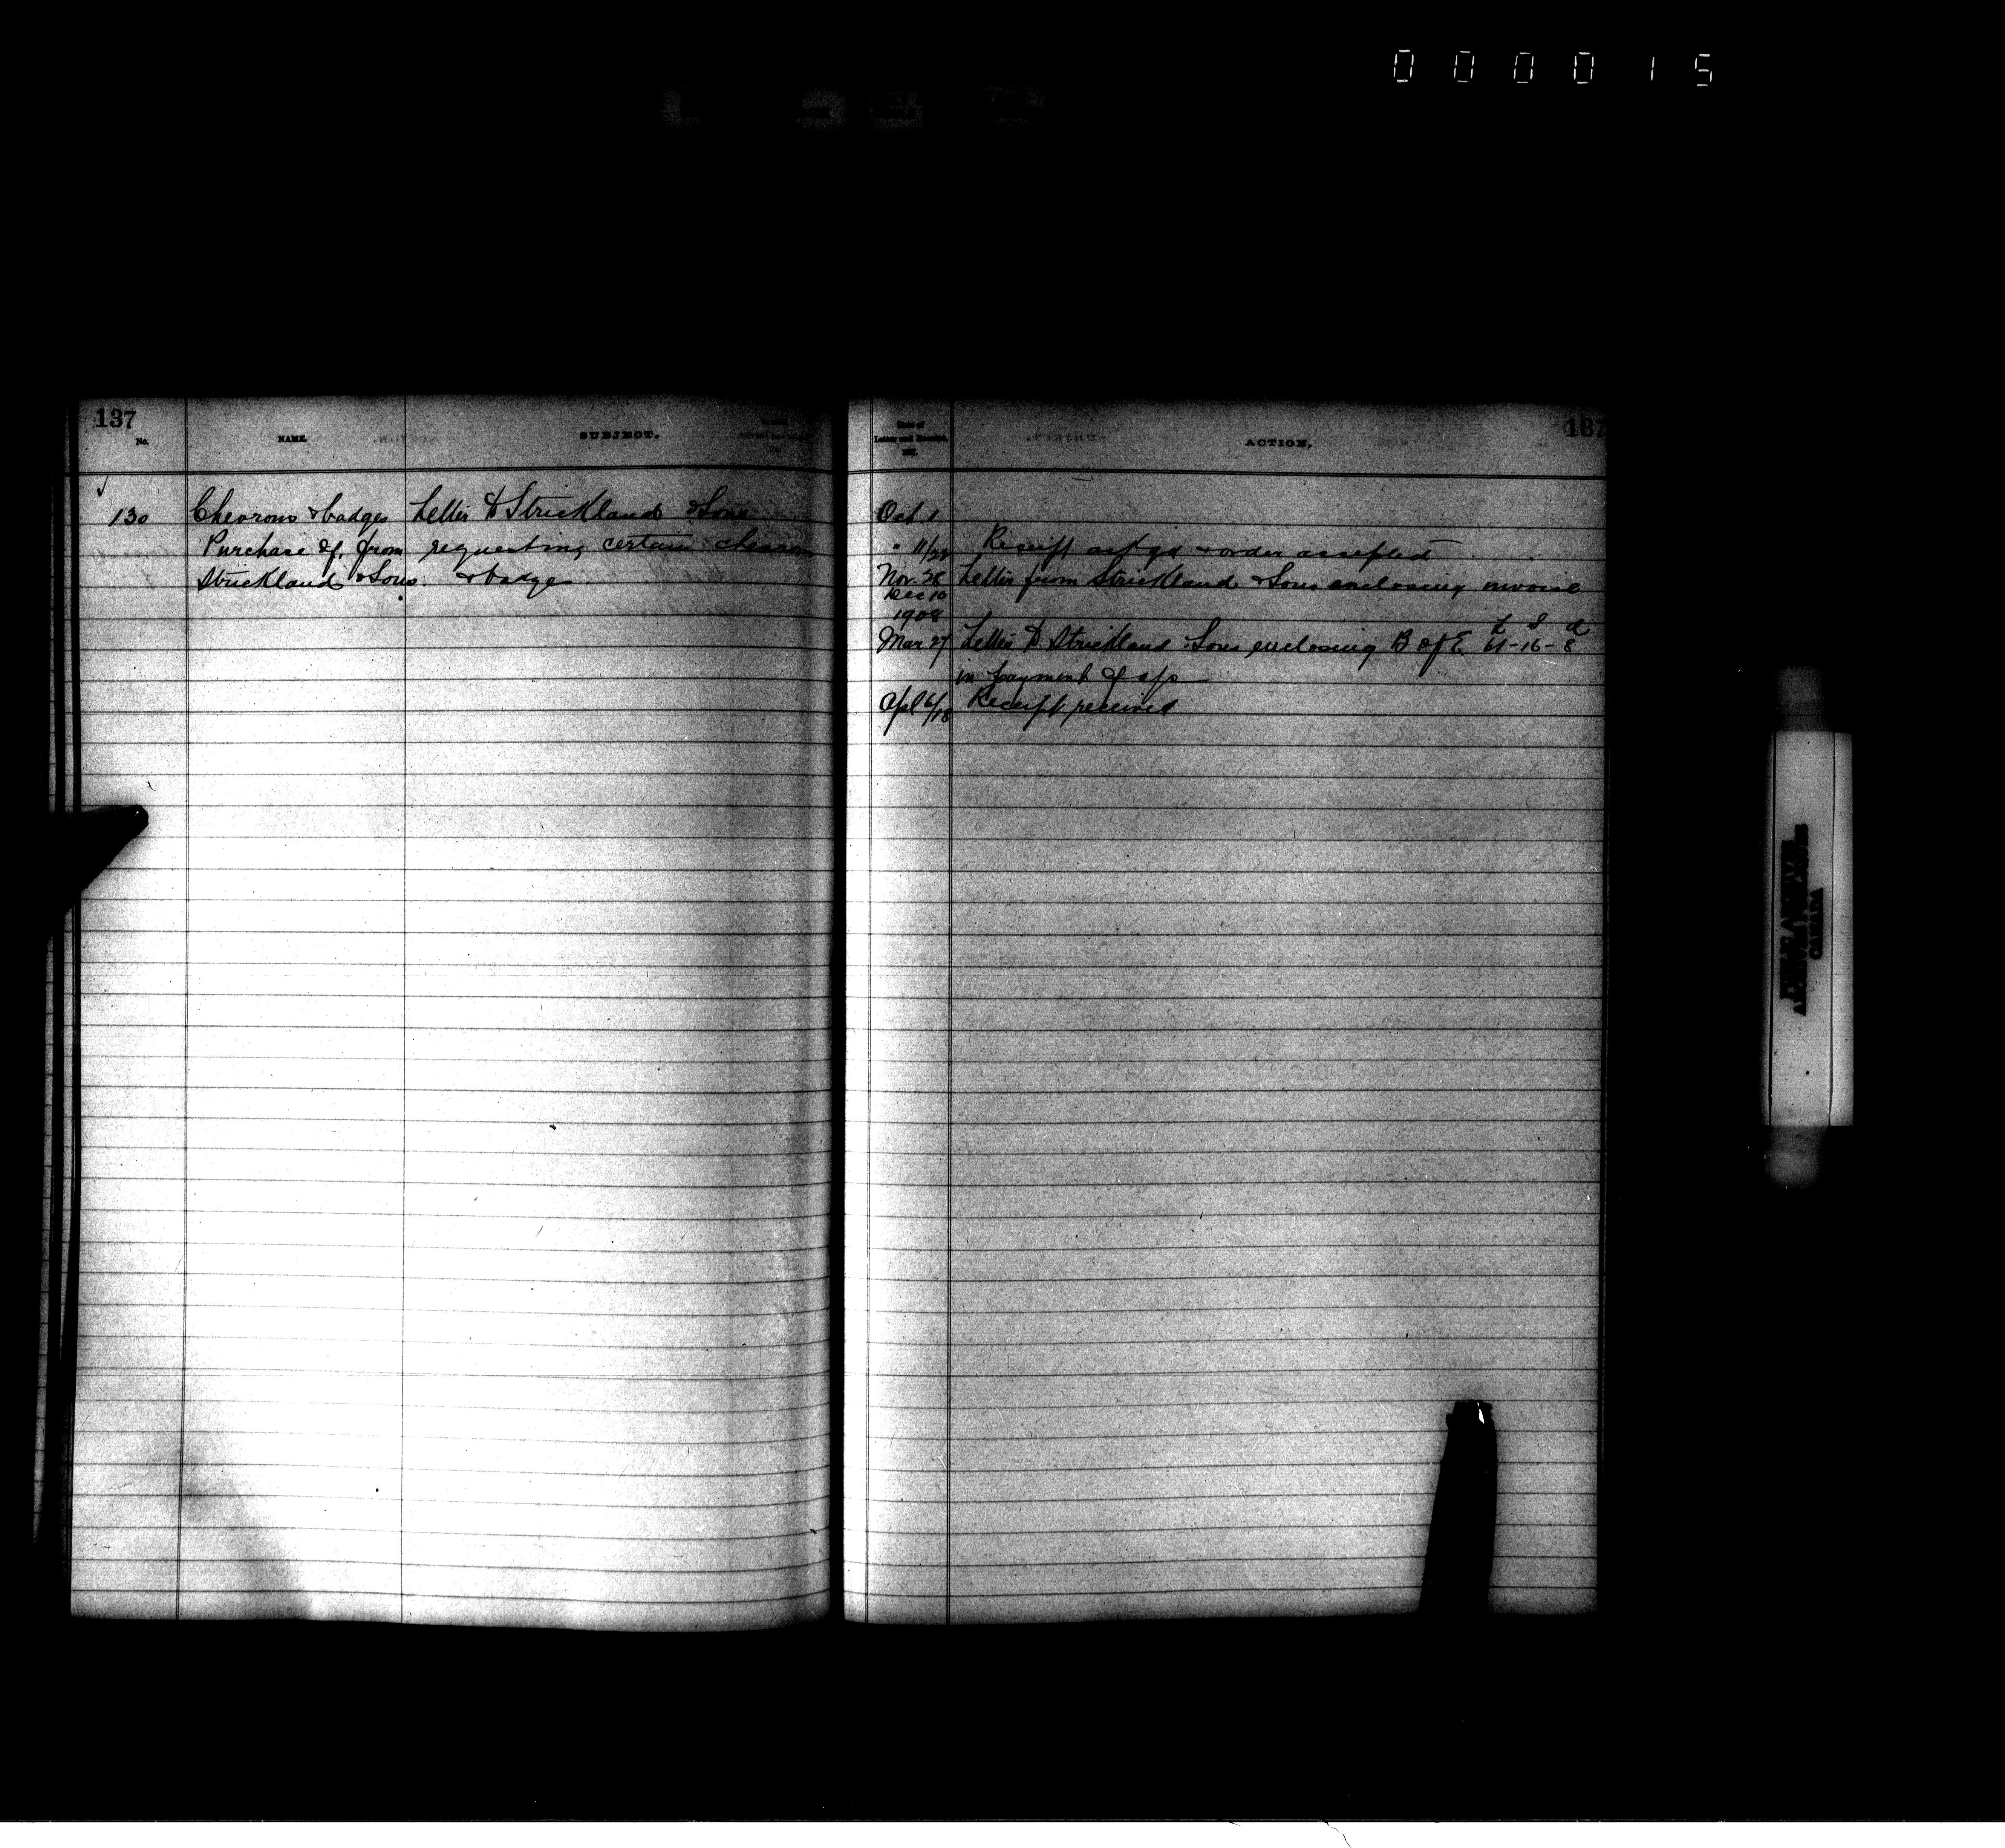 000015
137
No.
NAME.
SUBJECT.
130 Chevrons & badges
Purchase of, from
Strickland & Sons.
Letter to Strickland & Sons
requesting certain chevrons
& badges.
137
Date of
Letter and Receipt.
190
ACTION.
Oct. 1
" 11/22 Receipt ack'gd & order accepted
Nov. 28 Letter from Strickland & Sons enclosing invoice
Dec 10
1908
£ S d
Mar 27 Letter to Strickland & Sons enclosing B of E 61-16-8
in payment of a/c
Apl 6/18 Receipt received
PUBLIC ARCHIVES
ARCHIVES PUBLIQUES
CANADA